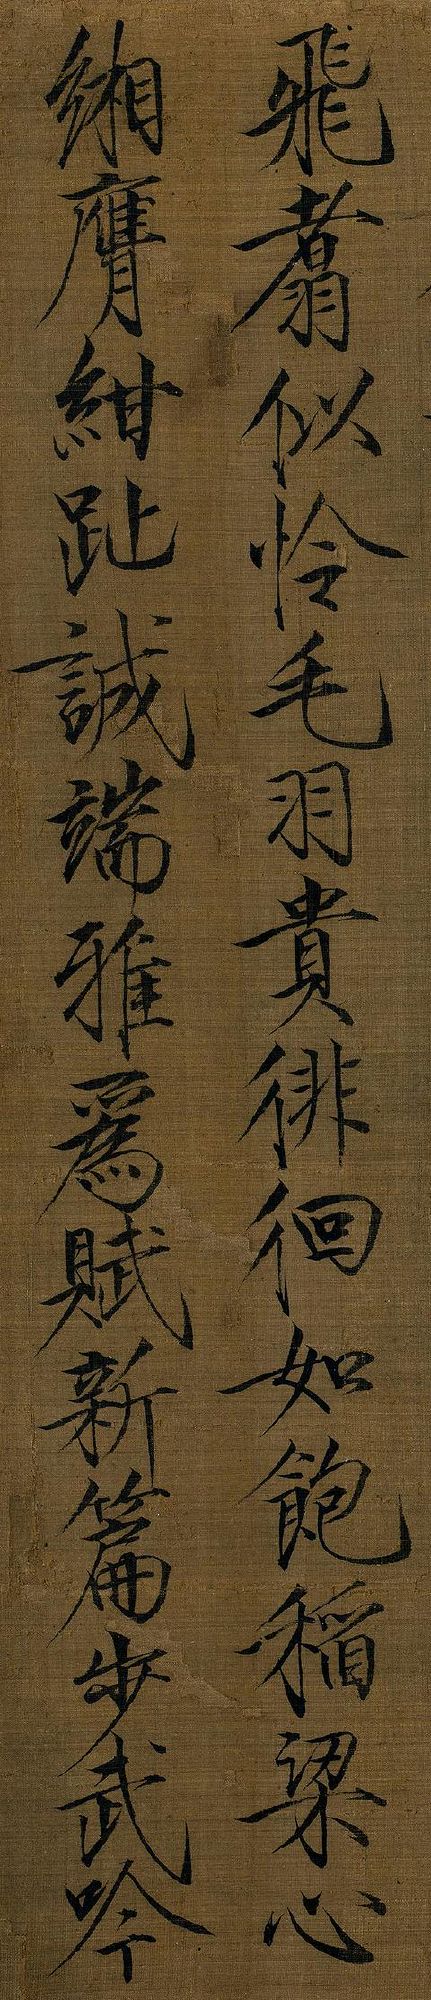 飛翥似怜毛羽貴徘徊如飽稲粱心
緗膺紺趾誠端雅爲賦新篇步武吟